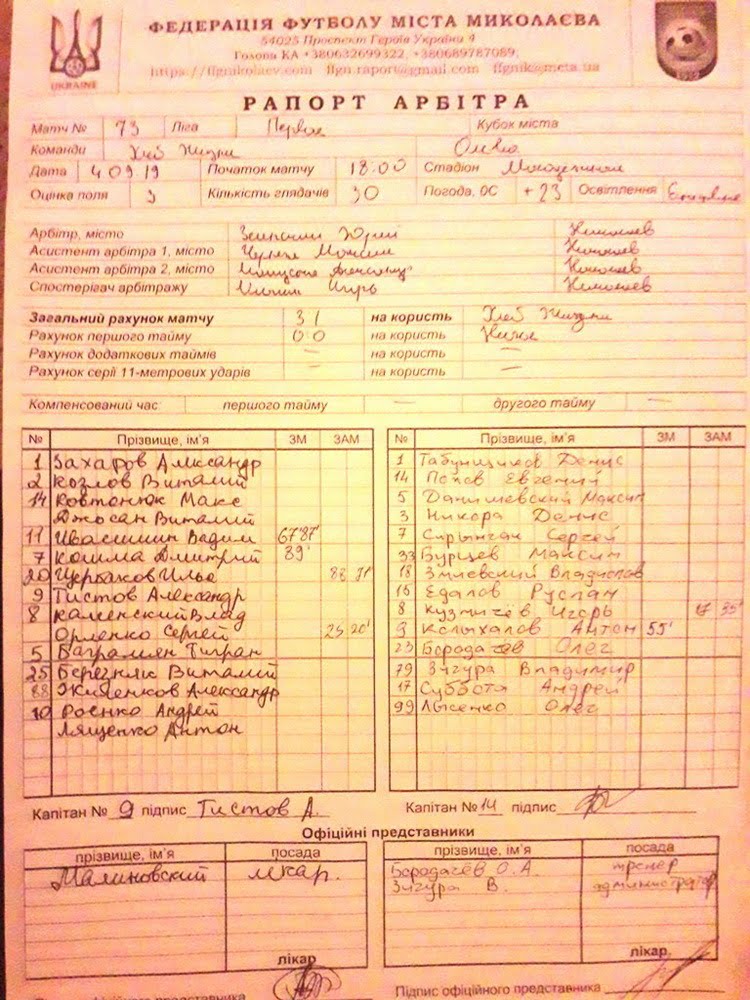 UKRAINE
ФЕДЕРАЦІЯ ФУТБОЛУ МІСТА МИКОЛАЄВА
54025 Проспект Героїв України 4
Голова КА +380632699322, +380689787089,
РАПОРТ АРБІТРА
Матч № 73 Ліга Первая Кубок міста
Команди Хлеб Жизни
Дата 4 09 19 Початок матчу 18:00 Стадіон
Оцінка поля 3 Кількість глядачів 30 Погода, 0С +23 Освітлення
Арбітр, місто Юрий Николаев
Асистент арбітра 1, місто Максим Николаев
Асистент арбітра 2, місто Александр Николаев
Спостерігач арбітражу Игорь Николаев
Загальний рахунок матчу 3 1 на користь Хлеб Жизни
Рахунок першого тайму 0:0 на користь Ничья
Рахунок додаткових таймів — на користь —
Рахунок серії 11-метрових ударів — на користь —
Компенсований час першого тайму — другого тайму —
№ Прізвище, ім'я ЗМ ЗАМ
1 Захаров Александр
2 Козлов Виталий
14 Ковтонюк Макс
Джосан Виталий
11 Ивасишин Вадим 67'87'
7 Кошма Дмитрий 89'
20 Щербаков Илья
9 Тистов Александр
8 Каменский Влад
Орленко Сергей
5 Баграмян Тигран
25 Бережняк Виталий
88 Живенков Александр
10 Роенко Андрей
Лященко Антон
№ Прізвище, ім'я ЗМ ЗАМ
1 Табунщиков Денис
14 Попов Евгений
5 Данилевский Максим
3 Никора Денис
7 Скрынган Сергей
33 Бурцев Максим
18 Змиевский Владислав
15 Едалов Руслан
8 Кузмичёв Игорь
9 Колыхалов Антон 55'
23 Бородачёв Олег
79 Зигура Владимир
17 Суббота Андрей
99 Лысенко Олег
Капітан № 9 підпис Тистов А.
Капітан № 14 підпис
Офіційні представники
прізвище, ім'я посада
Малиновский лікар.
лікар
прізвище, ім'я посада
Бородачёв О.А. тренер
Зигура В. администратор
лікар
Підпис офіційного представника